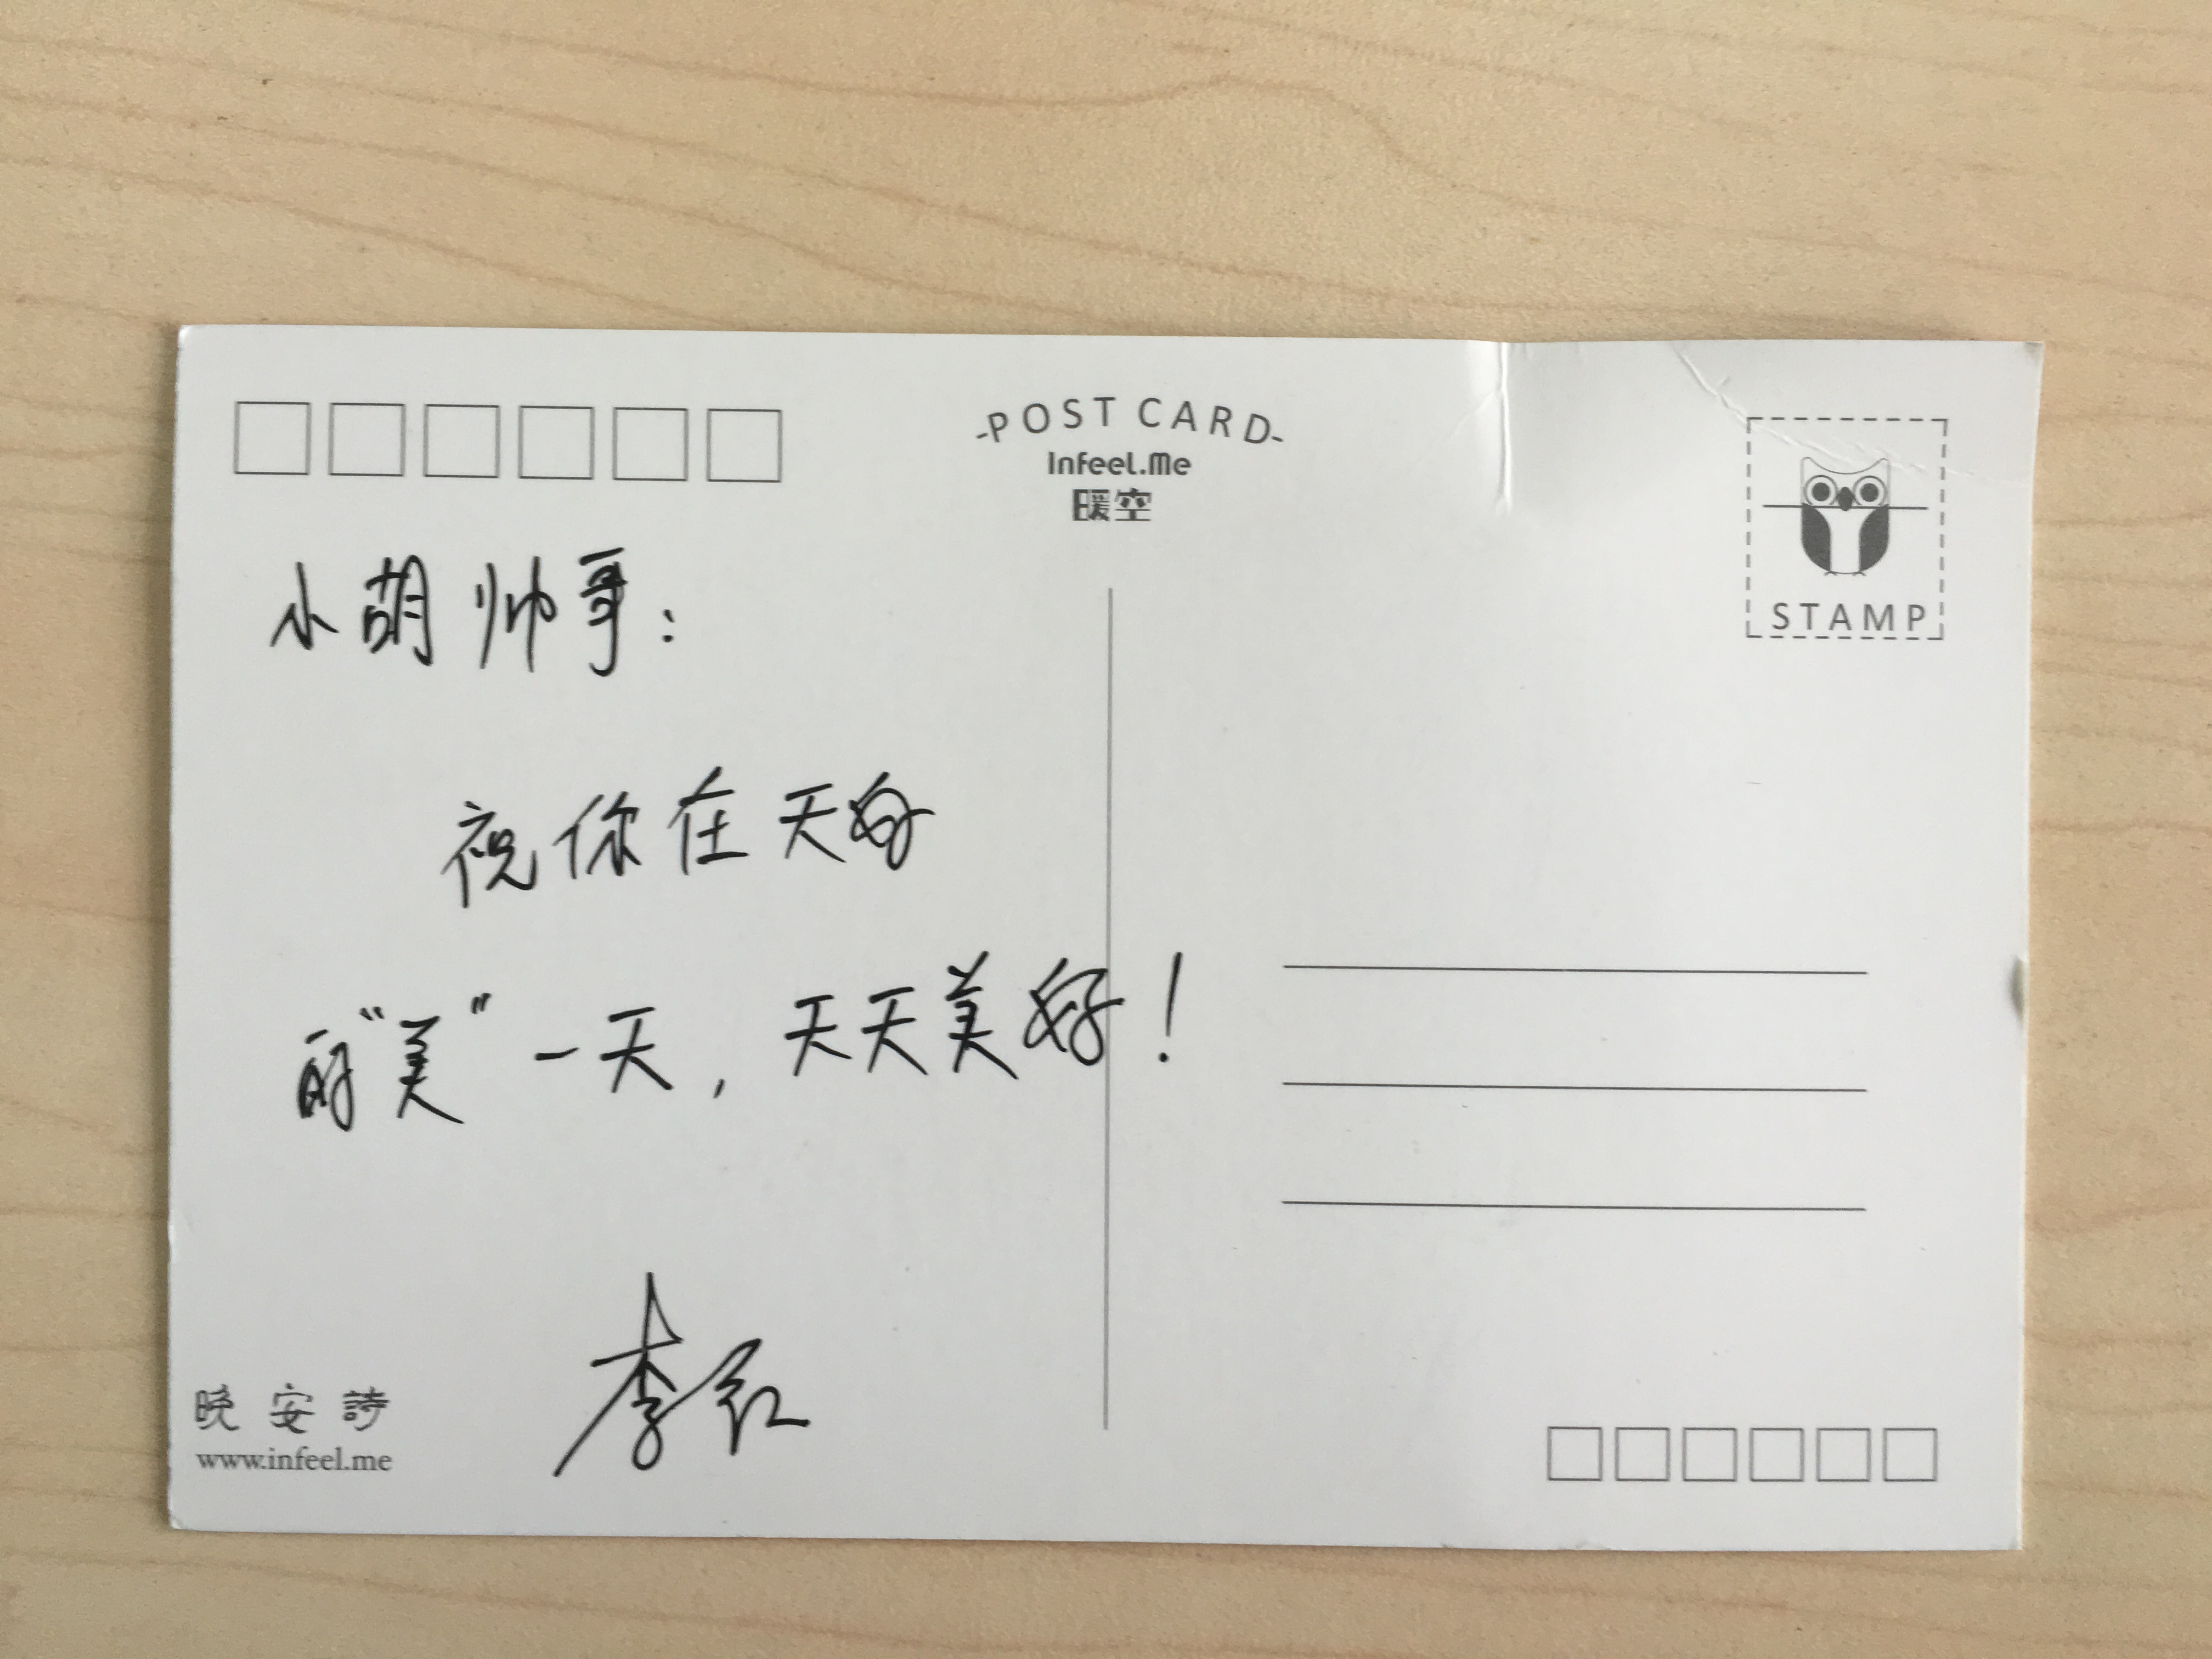 -POST CARD-
Infeel.Me
暖空
STAMP
小萌帅哥：
祝你在天好
的“美”一天，天天美好！
李红
晚安詩
www.infeel.me